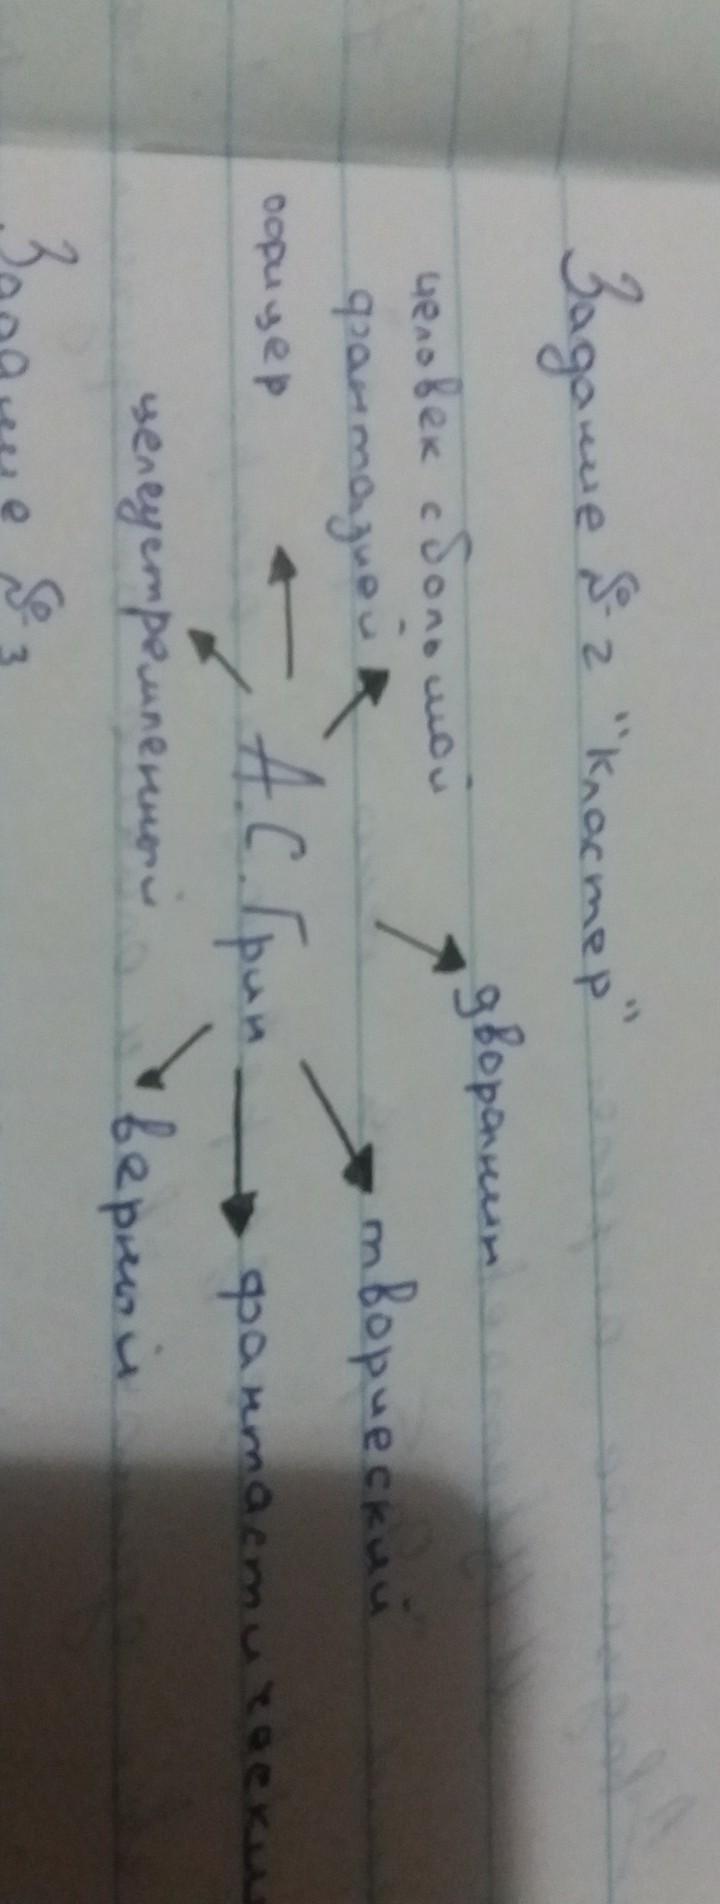 Задание № 2 "Кластер"
дворянин
человек с большой
фантазией
творческий
офицер
А.С.Грин
фантастически
целеустремленный
верный
Задание № 3